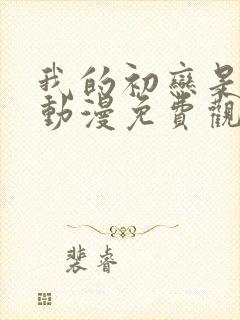 我的初戀是
動漫免費觀
裴睿